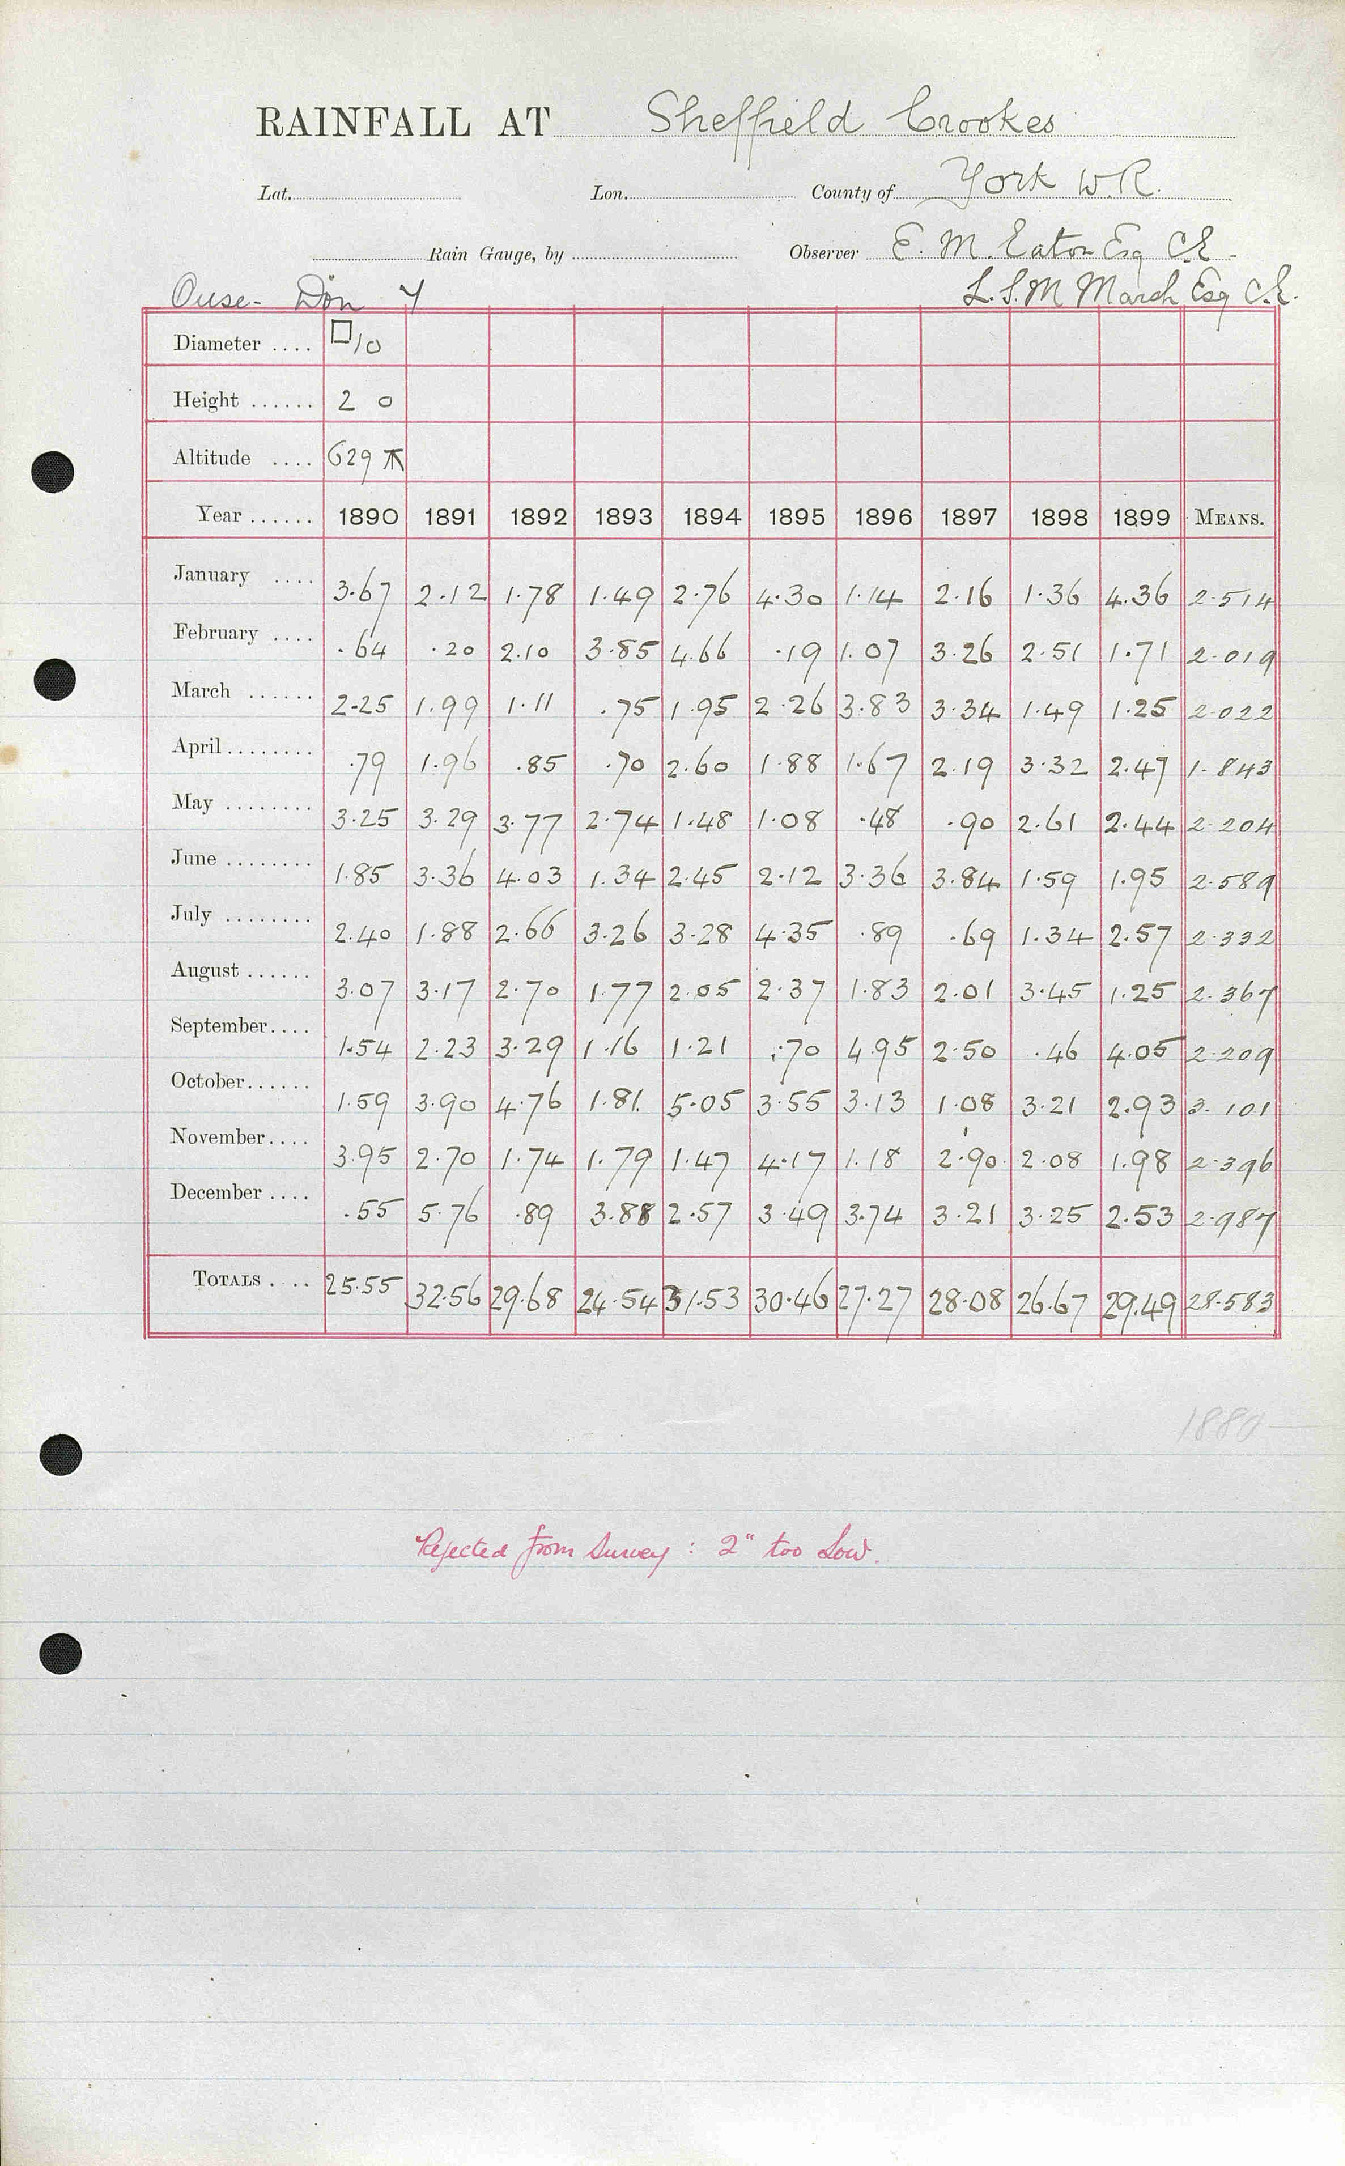 RAINFALL AT Sheffield Crookes
Lat. Lon. County of York W.R.
Rain Gauge, by Observer E. M. Eaton Esq C.E.
Ouse - Don Y L.S.M March Esq C.E.
Diameter .... □10
Height ...... 2 0
Altitude .... 629
Year ...... 1890 1891 1892 1893 1894 1895 1896 1897 1898 1899 MEANS.
January .... 3.67 2.12 1.78 1.49 2.76 4.30 1.14 2.16 1.36 4.36 2.514
February .... .64 .20 2.10 3.85 4.66 .19 1.07 3.26 2.51 1.71 2.019
March ...... 2.25 1.99 1.11 .75 1.95 2.26 3.83 3.34 1.49 1.25 2.022
April ........ .79 1.96 .85 .70 2.60 1.88 1.67 2.19 3.32 2.47 1.843
May ........ 3.25 3.29 3.77 2.74 1.48 1.08 .48 .90 2.61 2.44 2.204
June ........ 1.85 3.36 4.03 1.34 2.45 2.12 3.36 3.84 1.59 1.95 2.589
July ........ 2.40 1.88 2.66 3.26 3.28 4.35 .89 .69 1.34 2.57 2.332
August ...... 3.07 3.17 2.70 1.77 2.05 2.37 1.83 2.01 3.45 1.25 2.367
September .... 1.54 2.23 3.29 1.16 1.21 .70 4.95 2.50 .46 4.05 2.209
October ...... 1.59 3.90 4.76 1.81 5.05 3.55 3.13 1.08 3.21 2.93 3.101
November .... 3.95 2.70 1.74 1.79 1.47 4.17 1.18 2.90 2.08 1.98 2.396
December .... .55 5.76 .89 3.88 2.57 3.49 3.74 3.21 3.25 2.53 2.987
TOTALS .... 25.55 32.56 29.68 24.54 31.53 30.46 27.27 28.08 26.67 29.49 28.583
1880 -
Rejected from Survey : 2" too low.